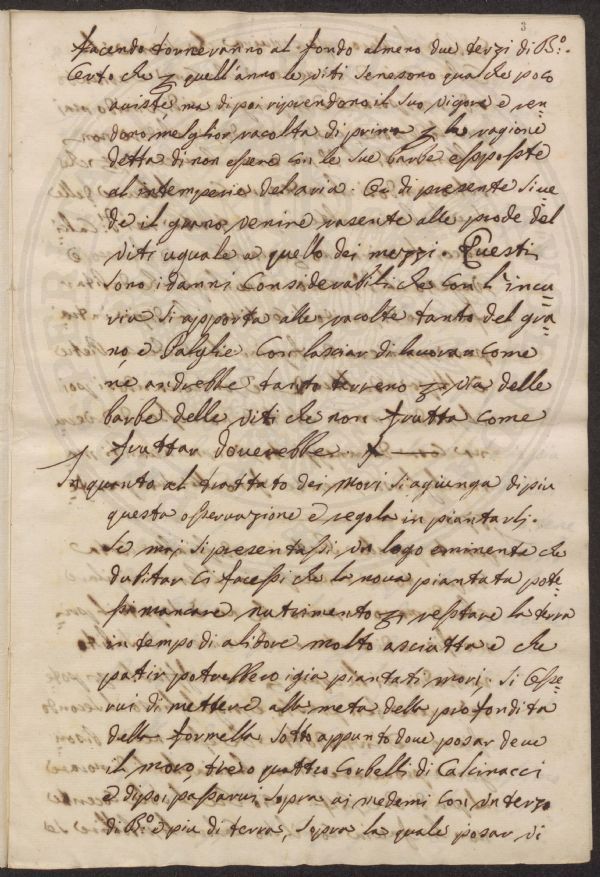 3
facendo torneranno al fondo almeno due terzi di B.º.
Certo che p quell'anno le viti se nesono qualche poco
auiste, ma di poi riprendono il suo vigore e ren=
dono meglior racolta di prima p la ragione
detta di non essere con le sue barbe espposte
al intemperie del aria. Et di presente si ue=
de il grano venire rasente alle prode del
viti uguale a quello dei mezzi. Questi
sono i danni considerabili che con l'incu=
ria si apporta alle racolte tanto del gra=
no, e Palglie con lasciar di lauorar come
ne andrebbe tanto terreno p via delle
barbe delle viti che non frutta come
fruttar douerebbe.
In quanto al trattato dei Mori si agiunga di piu
questa osseruazione e regola in piantarli.
Se mai si presentassi vn logo eminente che
dubitar ci facessi che la noua piantata pote=
si mancare nutrimento p resstare la terra
in tempo di alidore molto asciutta e che
patir potrebbero i gia piantati mori, si
di mettere alla meta della profondita
della formella sotto appunto doue posar deue
il moro, tre o quattro Corbelli di Calcinacci
e di poi passarui sopra ai medemi con vn terzo
di B.º e piu di terra, sopra la quale posar vi